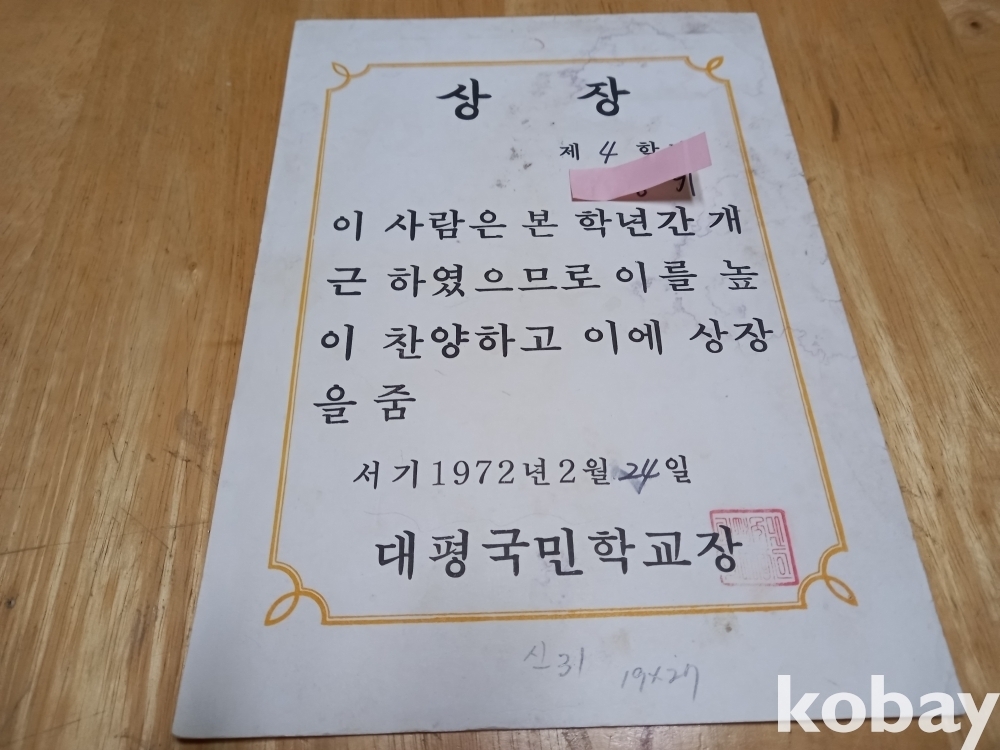 상 장
제 4 학
이 사람은 본 학년간 개
근 하였으므로 이를 높
이 찬양하고 이에 상장
을 줌
서기 1972년 2월 24일
대평국민학교장
신31
19×27
kobay